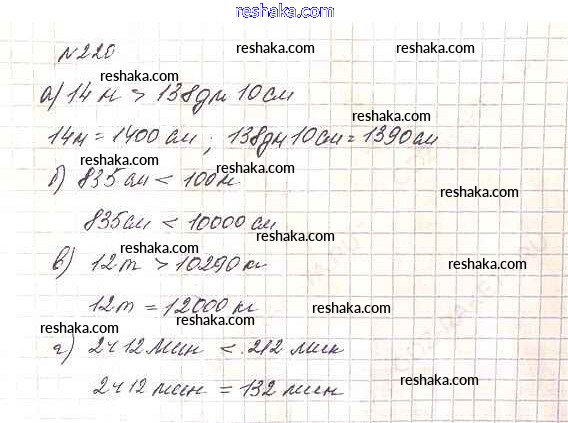 reshaka.com
№220
reshaka.com
reshaka.com
reshaka.com
а) 14 м > 138дм 10см
reshaka.com
reshaka.com
14м = 1400 см ; 138дм 10см = 1390см
reshaka.com
reshaka.com
б) 835см < 100м
reshaka.com
835см < 10000 см
reshaka.com
reshaka.com
в) 12т > 10290кг
reshaka.com
12т = 12000 кг
reshaka.com
reshaka.com
reshaka.com
г) 2ч 12 мин < 212 мин
reshaka.com
2ч 12 мин = 132 мин
reshaka.com
reshaka.com